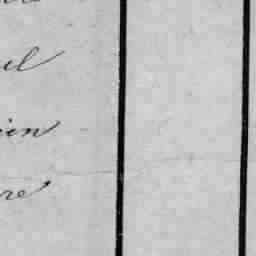 el
ien
re